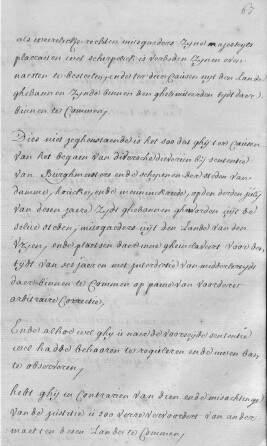 63
als weereltelijcke rechten misgaeders Zijne majesteyts
placcaeten wel scherpelick is verboden Zijnen even
naesten te bestelen, ende ter dier Causen uijt den Lande
ghebannen Zijnde binnen den ghelimiteerden tijdt daer
binnen te Commen,
Dies niet jeghenstaende is het soo dat ghij ter causen
van het begaen van diversche dieverien bij sententie
van Burghmeesters ende schepenen der steden van
damme, houcke, ende meuninckreede, op den derden julij
van desen jaere Zijdt ghebannen gheworden uijt de
selve steden, misgaeders uijt den Lande van den
Vrijen, ende plaetsen daer inne gheinclaveert voor den
tijdt van ses jaeren met interdictie van middelertijdt
daer binnen te Commen op paine van voordere
arbitraire Correctie,
Ende alhoe wel ghij naer de voorseijde sententie
wel hadde behooren te reguleren ende uwen ban
te observeren,
hebt ghij in Contrarien van dien ende misachtinge
van de justitie u soo verre vervoordert van ander
mael in desen Lande te Commen,